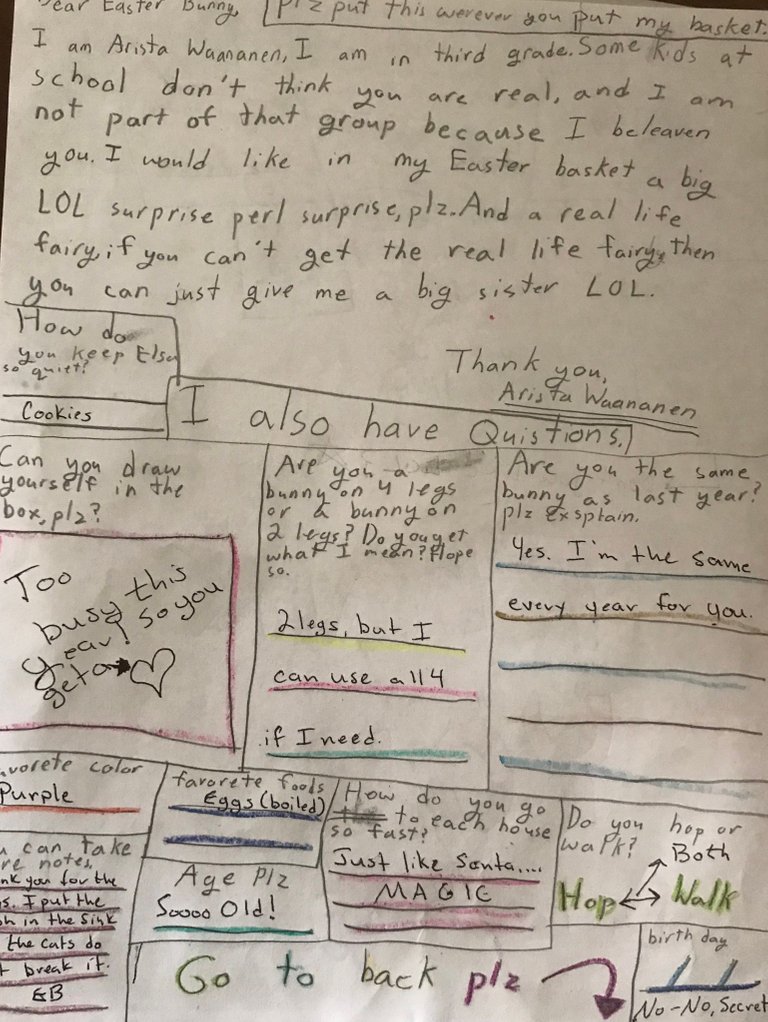 ear Easter Bunny,
plz put this werever you put my basket.
I am Arista Waananen, I am in third grade. Some kids at
school don't think you are real, and I am
not part of that group because I beleaven
you. I would like in my Easter basket a big
LOL surprise perl surprise, plz. And a real life
fairy, if you can't get the real life fairy, then
you can just give me a big sister LOL.
Thank you,
Arista Waananen
How do
you keep Elsa
so quiet?
Cookies
I also have Quistions.
Can you draw
yourself in the
box, plz?
Too
busy this
year! So you
get a → ♡
Are you a
bunny on 4 legs
or a bunny on
2 legs? Do you get
what I mean? Hope
so.
2 legs, but I
can use all 4
if I need.
Are you the same
bunny as last year?
plz exsptain.
Yes. I'm the same
every year for you.
avorete color
Purple
favorete foods
Eggs (boiled)
How do you go
to each house
so fast?
Just like Santa....
MAGIC
Do you hop or
walk?
Both
Hop Walk
u can take
re notes.
nk you for the
s. I put the
h in the sink
the cats do
t break it.
EB
Age plz
Soooo Old!
Go to back plz
birth day
No-No, Secret